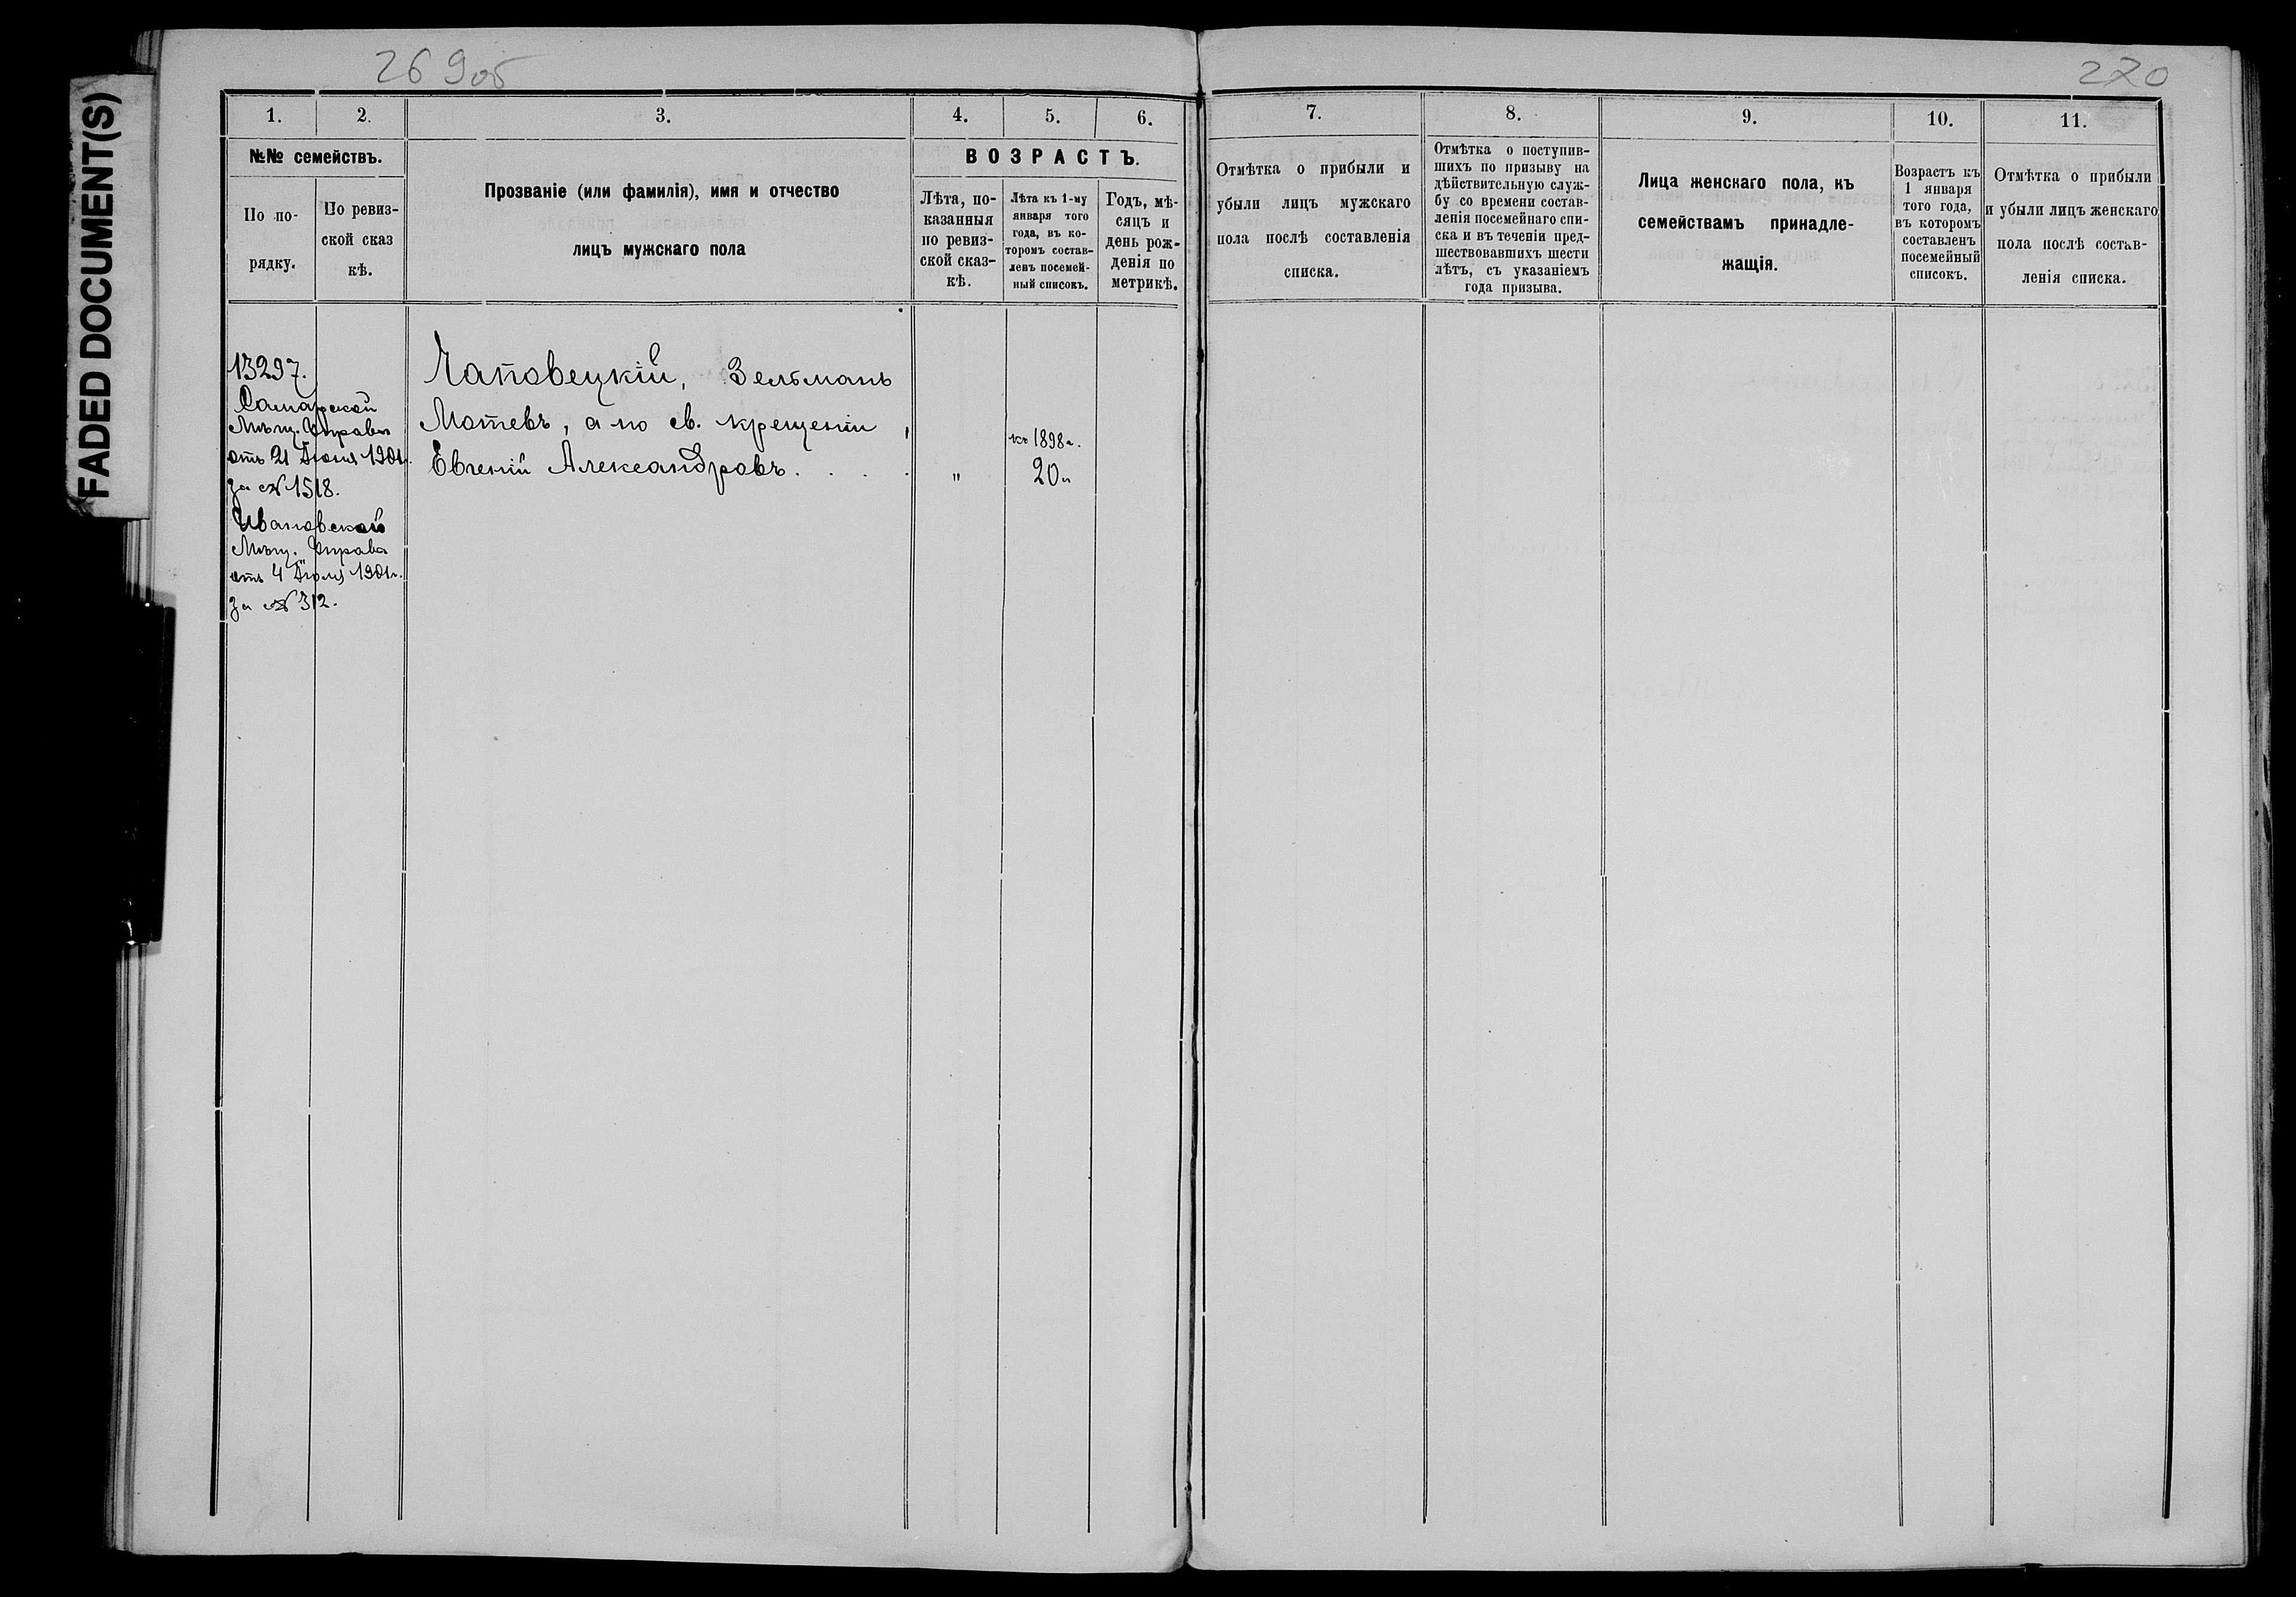 FADED DOCUMENT(S)
269об
270
1.
2.
3.
4.
5.
6.
7.
8.
9.
10.
11.
№№ семействъ.
По по-
рядку.
По ревиз-
ской сказ
кѣ.
Прозваніе (или фамилія), имя и отчество
лицъ мужскаго пола
ВОЗРАСТЪ.
Лѣта, по-
казанныя
по ревиз-
ской сказ-
кѣ.
Лѣта къ 1-му
января того
года, въ ко-
торомъ состав-
ленъ посемей-
ный списокъ.
Годъ, мѣ-
сяцъ и
день рож-
денія по
метрикѣ.
Отмѣтка о прибыли и
убыли лицъ мужскаго
пола послѣ составленія
списка.
Отмѣтка о поступив-
шихъ по призыву на
дѣйствительную служ-
бу со времени состав-
ленія посемейнаго спи-
ска и въ теченіи пред-
шествовавшихъ шести
лѣтъ, съ указаніемъ
года призыва.
Лица женскаго пола, къ
семействамъ принадле-
жащія.
Возрастъ къ
1 января
того года,
въ которомъ
составленъ
посемейный
списокъ.
Отмѣтка о прибыли
и убыли лицъ женскаго
пола послѣ состав-
ленія списка.
13297.
Самарской
Мѣщ. Управы
отъ 21 Іюня 1901г.
за № 1518.
Ивановской
Мѣщ. Управа
отъ 4 Іюля 1901г.
за № 312.
Чаповецкій, Зельманъ
Мотевъ, а по св. крещеніи,
Евгеній Александровъ. . . .
"
къ 1898г.
20"